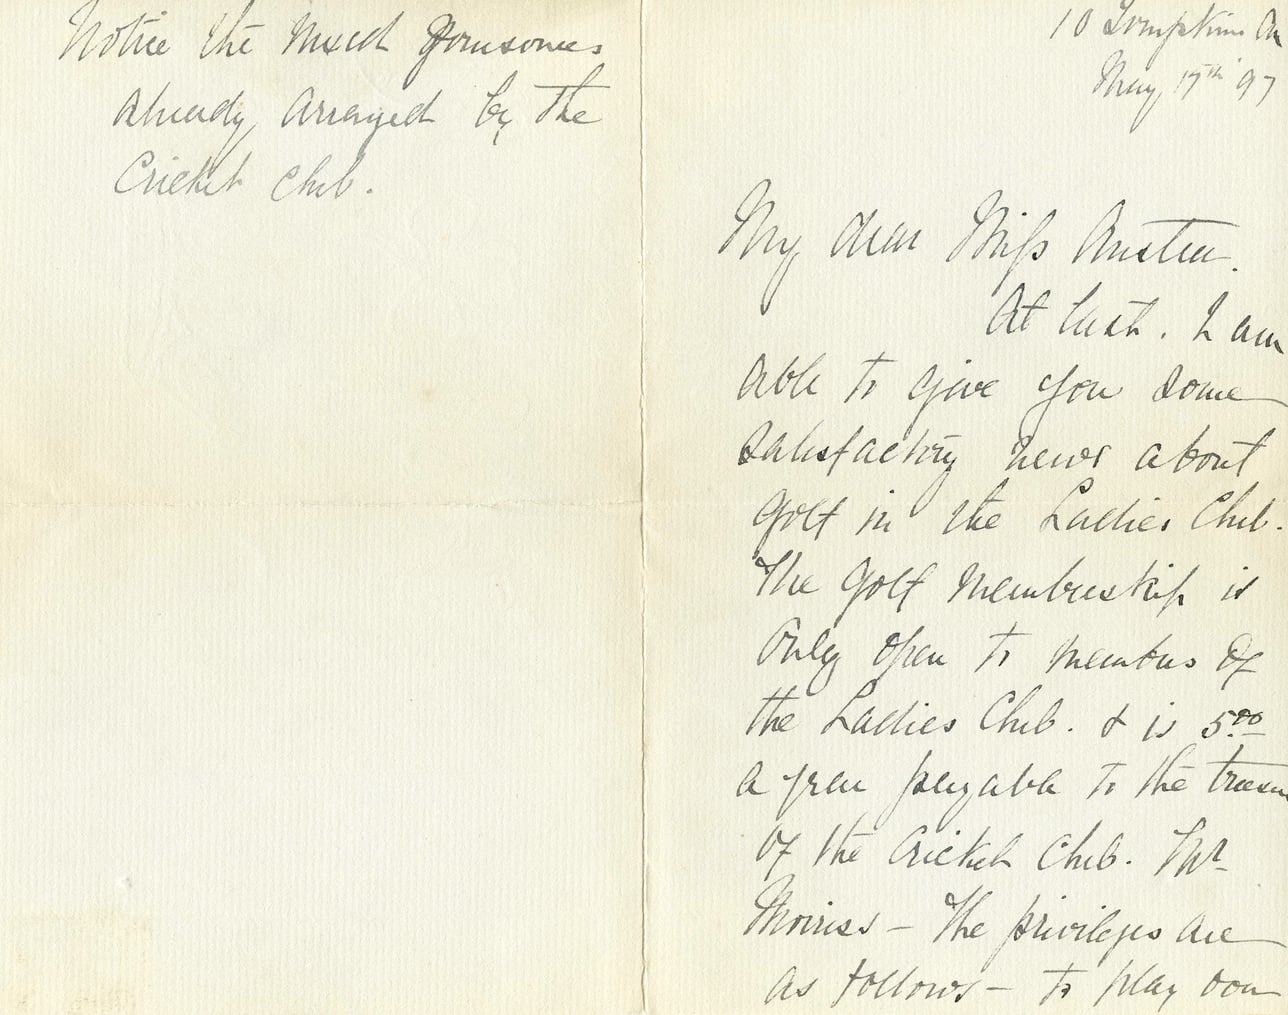 Notice the Mixed foursomes
already arranged by the
Cricket Club.
10 Tompkins Av
May 17th 97
My dear Miss Austen.
At last. I am
able to give you some
satisfactory news about
golf in the Ladies Club.
The Golf membership is
only open to members of
the Ladies Club. & is 5.00
a year payable to the treasu
of the Cricket Club. Mr
Moiriss – The privileges are
as follows – to play over